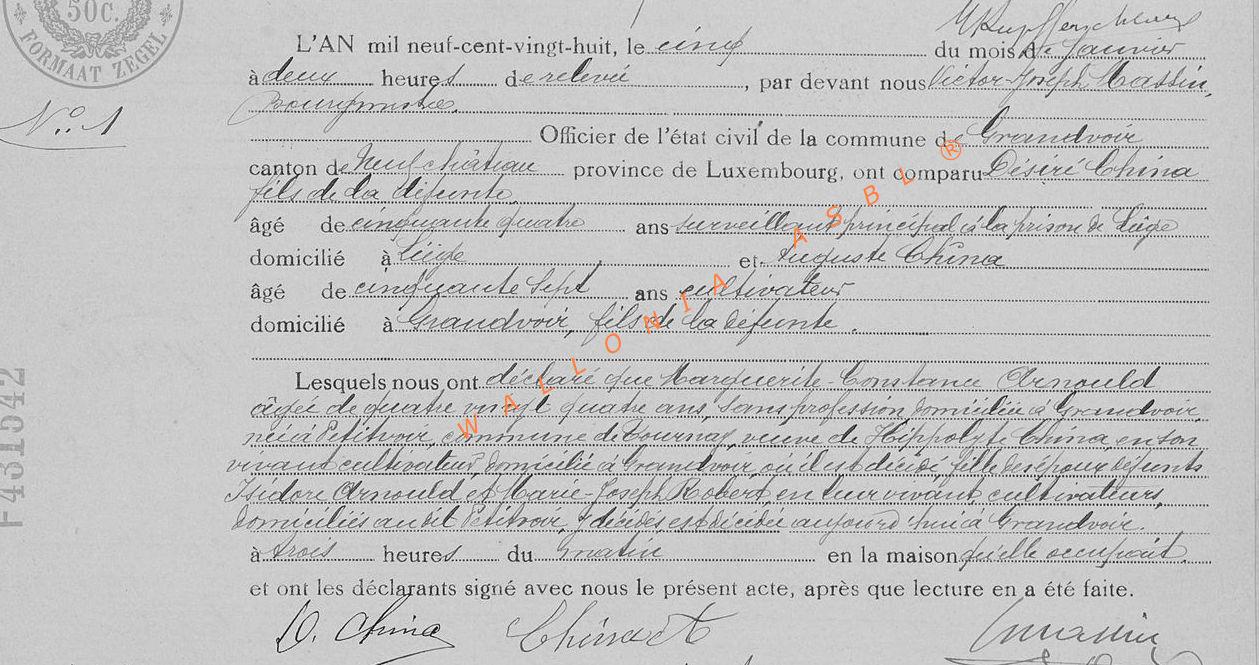 50c.
FORMAAT ZEGEL
L'AN mil neuf-cent-vingt-huit, le cinq du mois de Janvier
à deux heures de relevée, par devant nous Victor-Joseph Massin,
Bourgmestre,
N° 1
Officier de l'état civil de la commune de Grandvoir
canton de Neufchâteau province de Luxembourg, ont comparu Désiré China
fils de la défunte,
âgé de cinquante quatre ans surveillant principal à la prison de Liége
domicilié à Liége et Auguste China
âgé de cinquante sept ans cultivateur
domicilié à Grandvoir, fils de la défunte.
Lesquels nous ont déclaré que Marguerite-Constance Arnould
âgée de quatre vingt quatre ans, sans profession domiciliée à Grandvoir,
née à Petitvoir, commune de Tournay, veuve de Hippolyte China, en son
vivant cultivateur, domicilié à Grandvoir où il est décédé, fille des époux défunts
Isidore Arnould et Marie-Joseph Robert, en leur vivant, cultivateurs,
domiciliés au dit Petitvoir, y décédés est décédée aujourd'hui à Grandvoir.
à trois heures du matin en la maison qu'elle occupait
et ont les déclarants signé avec nous le présent acte, après que lecture en a été faite.
D. China China A Massin
F 431542
WALLONIA ASBL ®